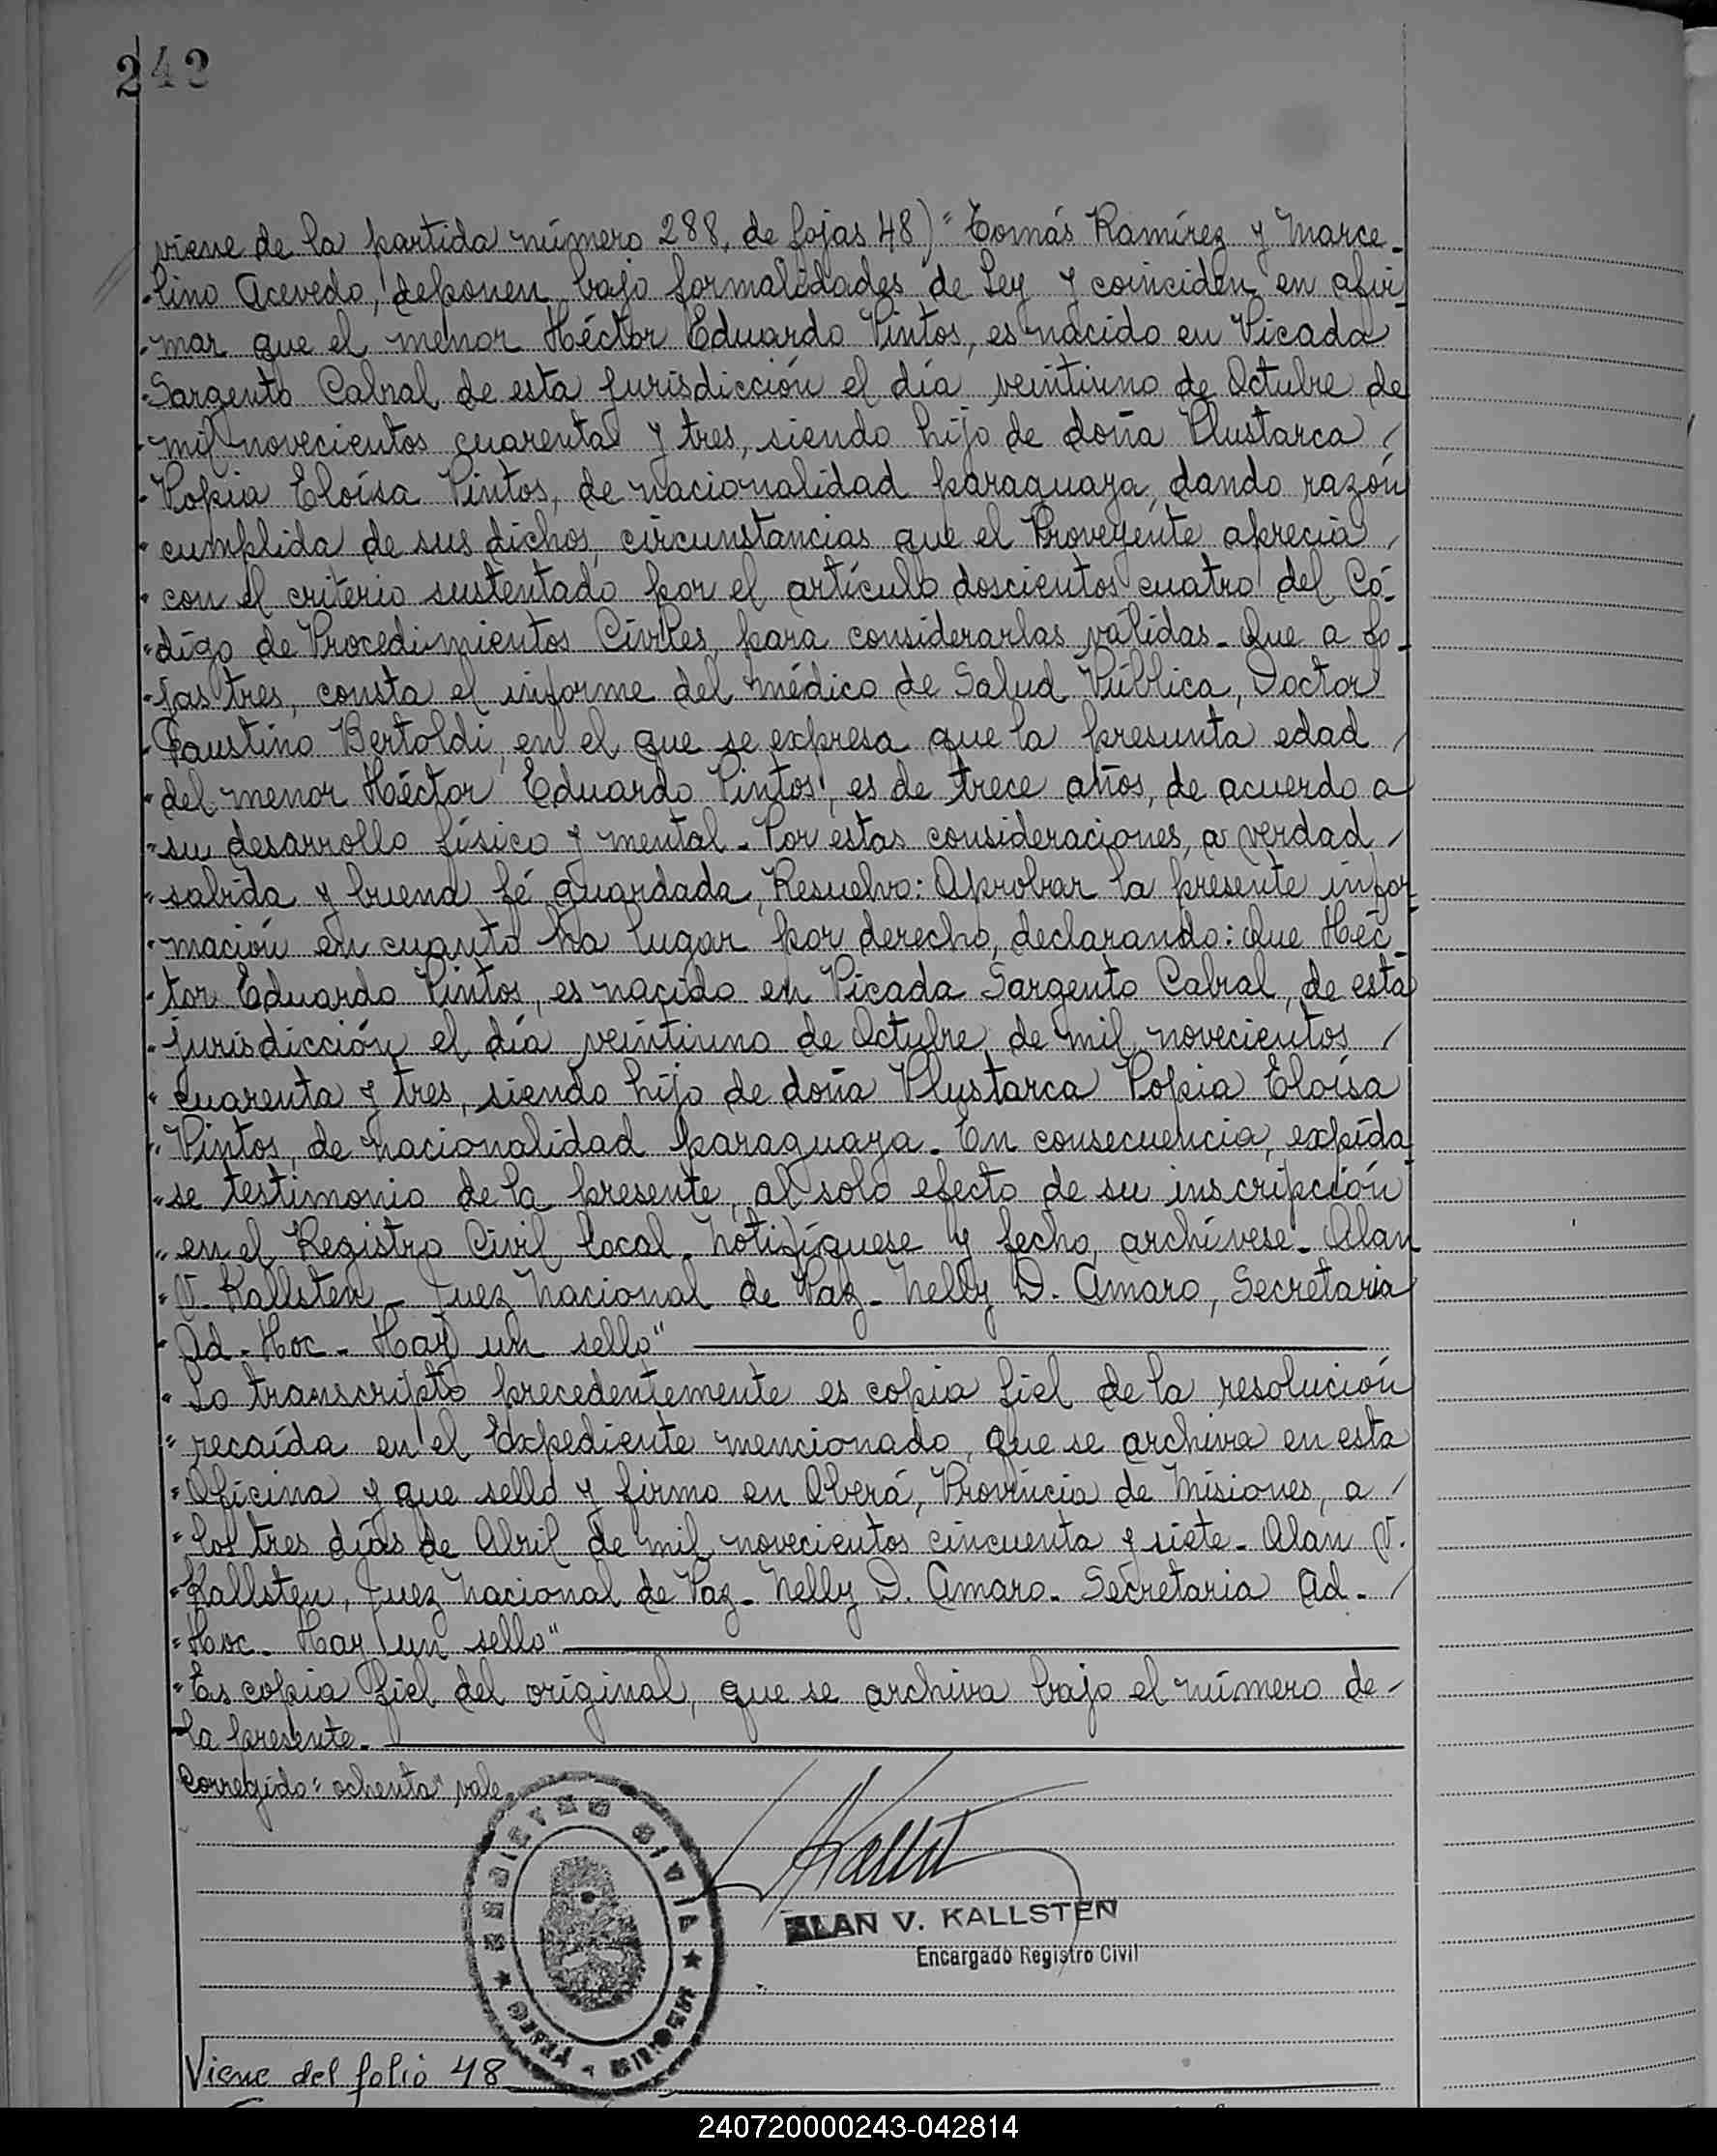 242
viene de la partida número 288, de fojas 48)" Tomás Ramírez y Marce-
"lino Acevedo, deponen bajo formalidades de Ley y coinciden en afir-
"mar que el menor Héctor Eduardo Pintos, es nacido en Picada
"Sargento Cabral de esta jurisdicción el día veintiuno de Octubre de
"mil novecientos cuarenta y tres, siendo hijo de doña Plustarca /
"Popia Eloísa Pintos, de nacionalidad paraguaya, dando razón
"cumplida de sus dichos, circunstancias que el Proveyente aprecia /
"con el criterio sustentado por el artículo doscientos cuatro del Có-
"digo de Procedimientos Civiles, para considerarlas válidas. Que a fo-
"jas tres, consta el informe del médico de Salud Pública, Doctor
"Faustino Bertoldi, en el que se expresa que la presunta edad /
"del menor Héctor Eduardo Pintos, es de trece años, de acuerdo a
"su desarrollo físico y mental. Por estas consideraciones, a verdad /
"sabida y buena fé guardada, Resuelvo: Aprobar la presente infor
"mación en cuanto ha lugar por derecho, declarando: Que Héc-
"tor Eduardo Pintos, es nacido en Picada Sargento Cabral, de esta
"jurisdicción el día veintiuno de Octubre de mil novecientos /
"cuarenta y tres, siendo hijo de doña Plustarca Popia Eloísa
"Pintos, de nacionalidad paraguaya. En consecuencia, expída
"se testimonio de la presente, al solo efecto de su inscripción
"en el Registro Civil local. Notifíquese y fecho, archívese. Alan
"V. Kallsten - Juez Nacional de Paz - Nelly D. Amaro, Secretaria
"Ad-Hoc - Hay un sello"
"Lo transcripto precedentemente es copia fiel de la resolución
"recaída en el Expediente mencionado, que se archiva en esta
"Oficina y que sello y firmo en Oberá, Provincia de Misiones, a /
"los tres días de Abril de mil novecientos cincuenta y siete. Alan V.
"Kallsten, Juez Nacional de Paz - Nelly D. Amaro. Secretaria Ad- /
"Hoc - Hay un sello"
"Es copia fiel del original, que se archiva bajo el número de-
"la presente.
Corregido: "ochenta" vale.
REGISTRO CIVIL
OBERÁ - MISIONES
ALAN V. KALLSTEN
Encargado Registro Civil
Viene del folio 48
240720000243-042814